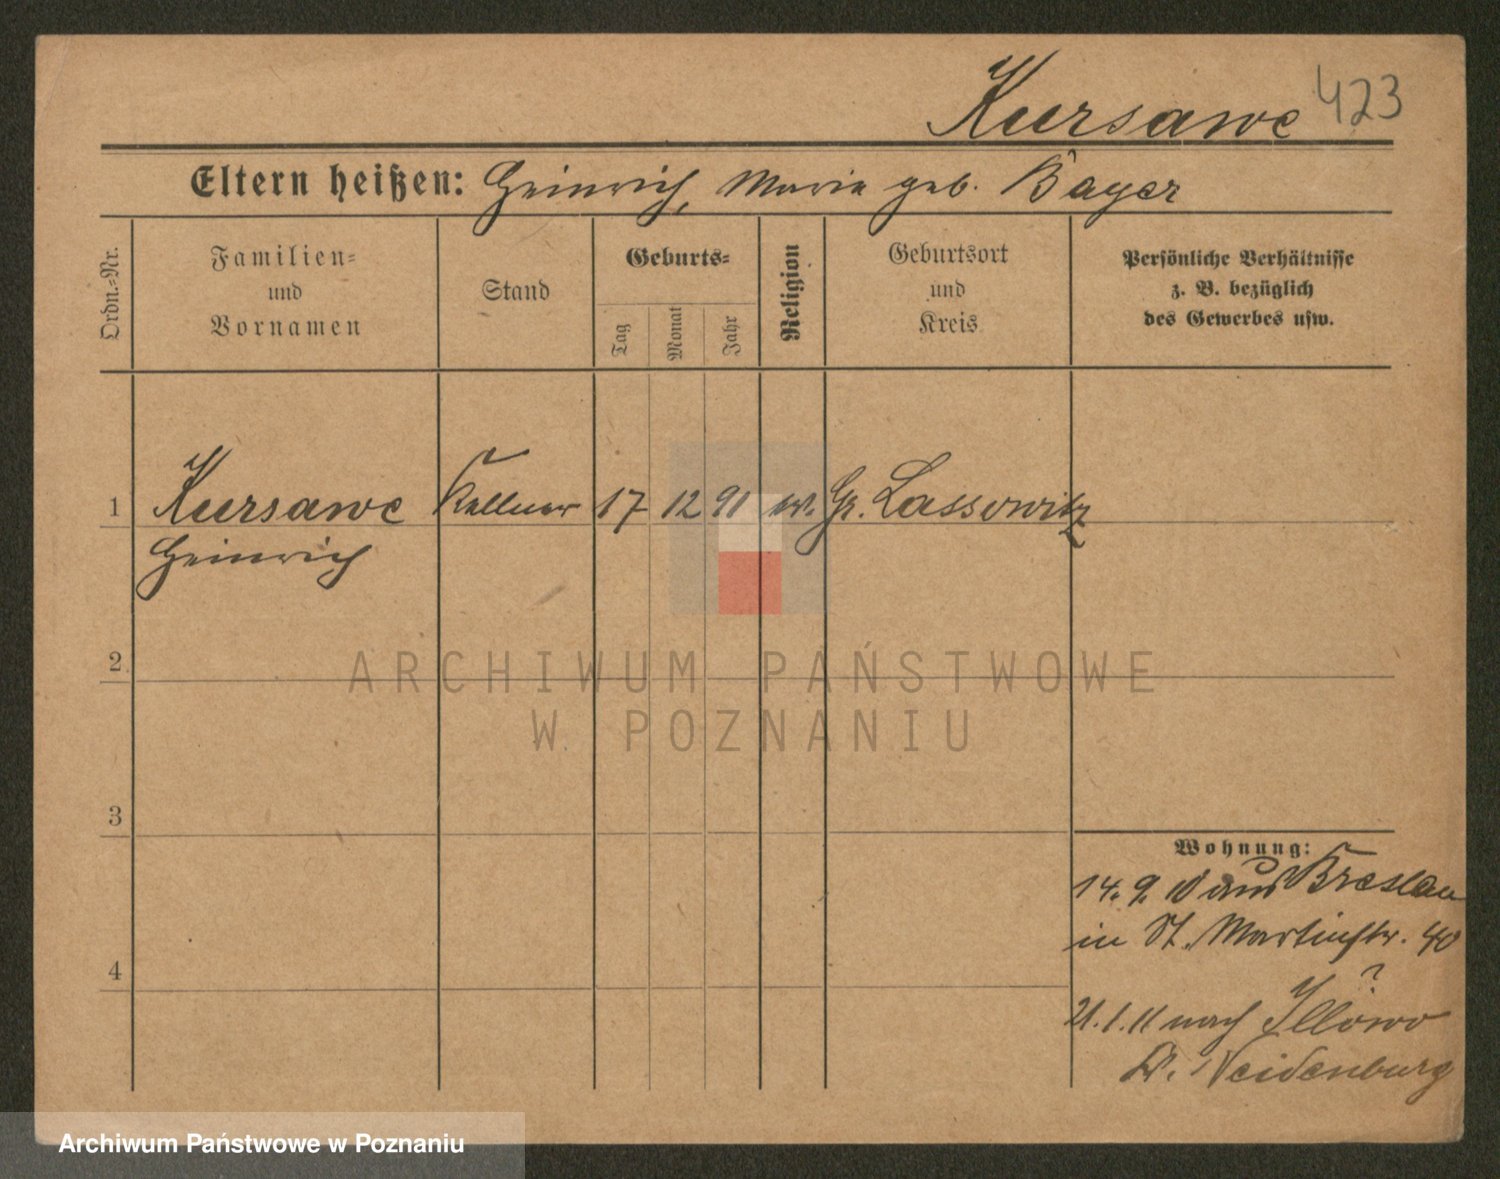 Kursawe 423
Eltern heißen: Heinrich, Marie geb. Bayer
Ordn.-Nr.
Familien- und Vornamen
Stand
Geburts-
Tag
Monat
Jahr
Religion
Geburtsort und Kreis
Persönliche Verhältnisse
z. B. bezüglich
des Gewerbes usw.
1 Kursawe Kellner 17 12 91 ev. Gr. Lassowitz
Heinrich
2
3
4
Wohnung:
14. 9. 10 aus Breslau
in St. Martinstr. 40
?
21. 1. 11 nach Illowo
Kr. Neidenburg
ARCHIWUM PAŃSTWOWE
W POZNANIU
Archiwum Państwowe w Poznaniu